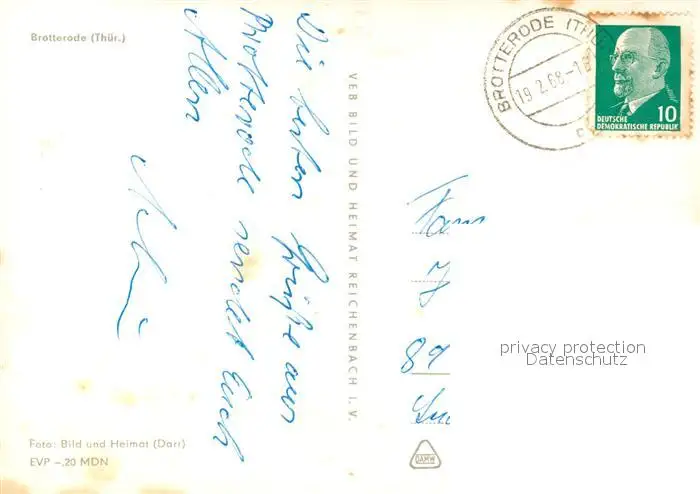 Brotterode (Thür.)
Die besten Grüße aus
Brotterode sendet Euch
Allen
VEB BILD UND HEIMAT REICHENBACH I. V.
BROTTERODE (THÜR
19.2.68-1
DEUTSCHE
DEMOKRATISCHE REPUBLIK
10
Fam
J
89
privacy protection
Datenschutz
Foto: Bild und Heimat (Darr)
EVP -,20 MDN
DAMW